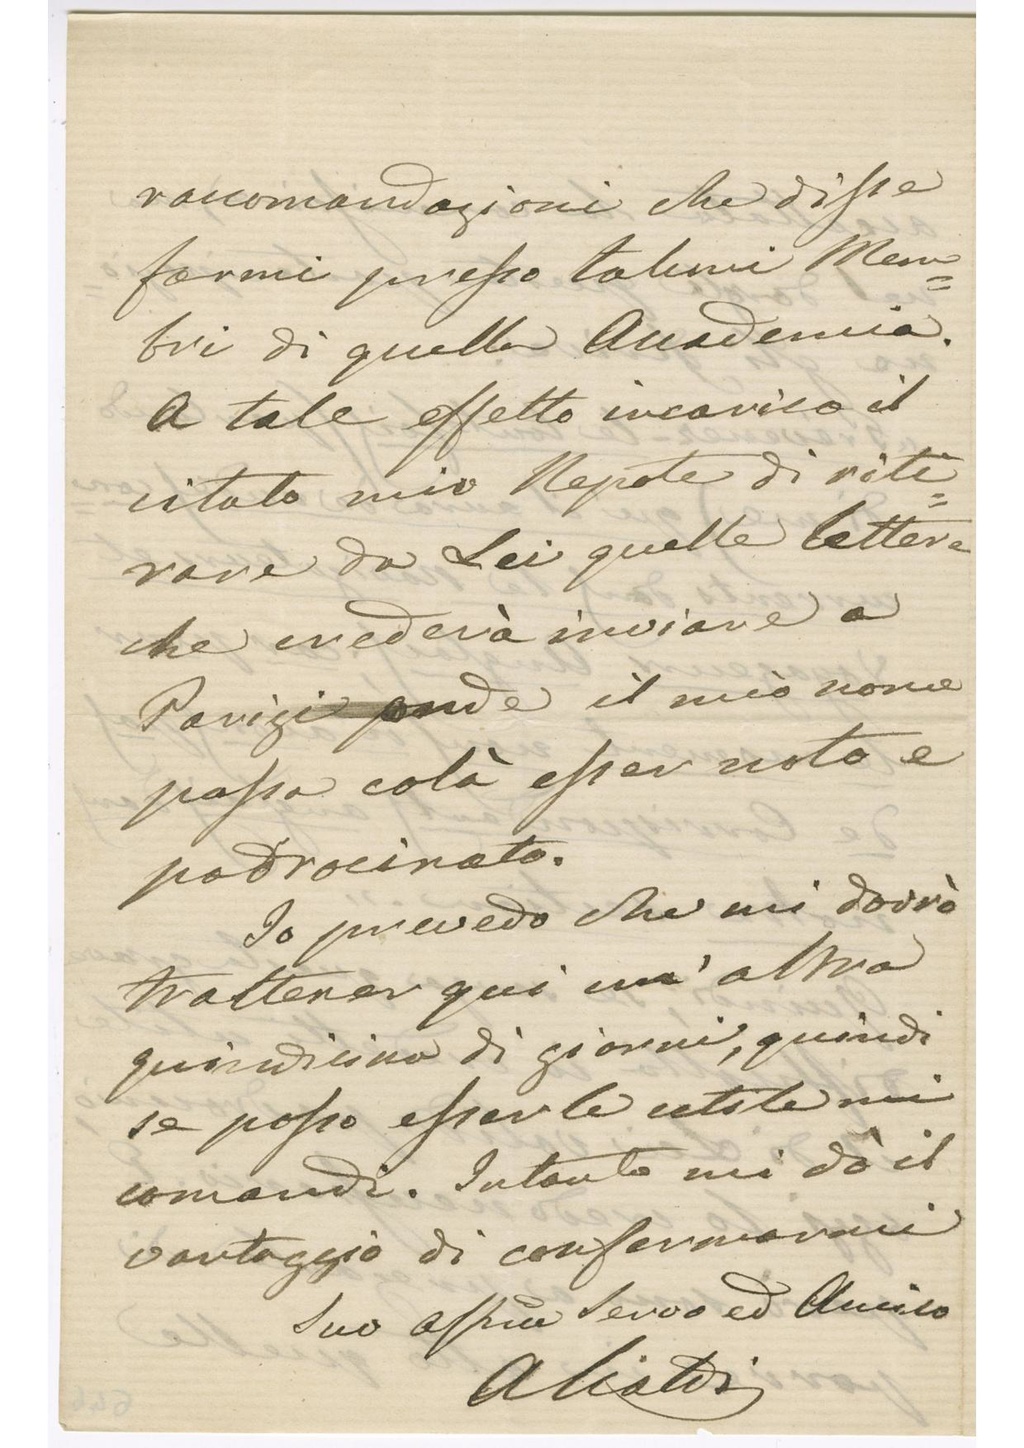 raccomandazioni che disse
farmi presso taluni Mem=
bri di quella Accademia.
A tale effetto incarico il
citato mio Nepote di riti=
rare da Lei quelle lettere
che crederà inviare a
Parigi onde il mio nome
possa colà esser noto e
padrocinato.
Io prevedo che mi dovrò
trattener qui un' altra
quindicina di giorni, quindi
se posso esserle utile mi
comandi. Intanto mi dò il
vantaggio di confermarmi
Suo Servo ed Amico
A Cialdi